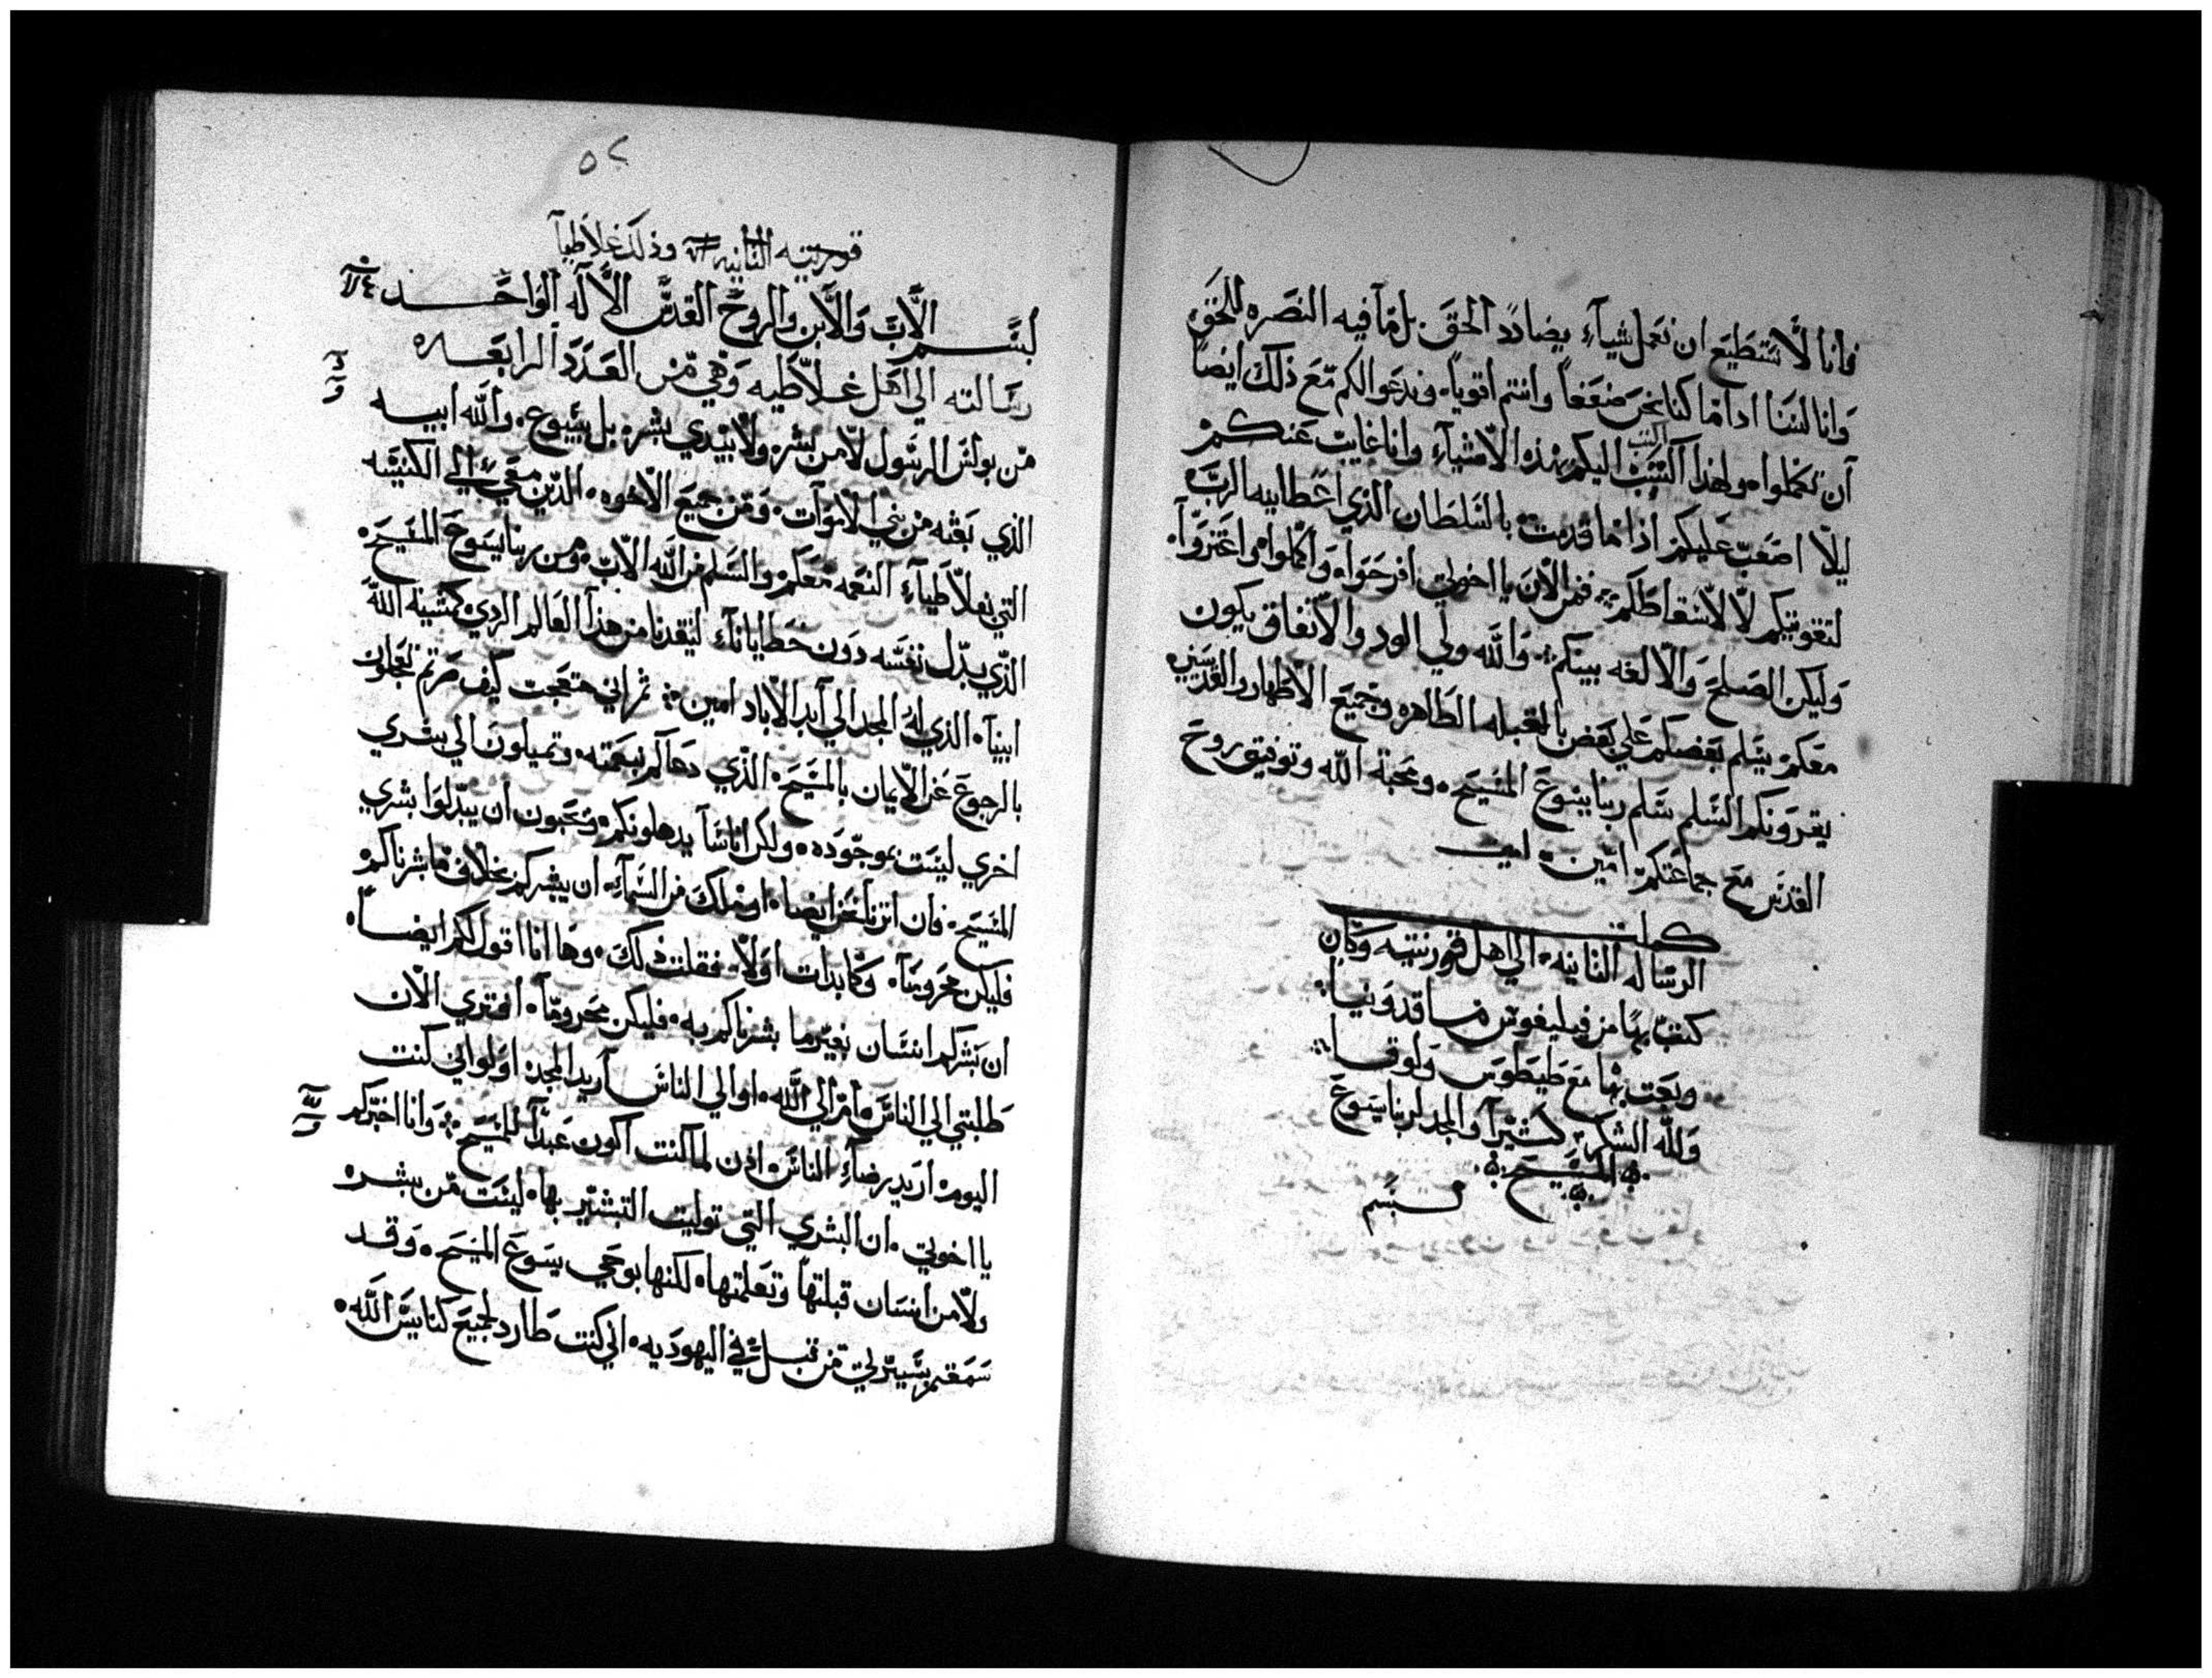 فانا لا نستطيع ان نعمل شياء يضادد الحق بل ما فيه النصره للحق
وانا لسنا اداما كنا نحن ضعفا وانتم اقويا وندعوا لكم مع ذلك ايضا
ان تكملوا ولهذا اكتب اليكم بهذه الاشياء وانا غايب عنكم
ليلا اصعب عليكم اذا ما قدمت بالسلطان الذي اعطانيه الرب
لتقويتكم لا لاسقاطكم فمن الان يا اخوتي افرحوا واكملوا واعتزوا
وليكن الصلح والالفه بينكم والله ولي الود والاتفاق يكون
معكم يسلم بعضكم علي بعض بالقبله الطاهره وجميع الاطهار والقديسين
يقرونكم السلم سلم ربنا يسوع المسيح ومحبة الله وتوفيق روح
القدس مع جماعتكم امين امين
كملت
الرساله الثانيه الي اهل قورنتيه وكان
كتب بها من فيليفوس ماقدونيا
وبعت بها مع طيطوس ولوقا
ولله الشكر كثيرا والمجد لربنا يسوع
المسيح
بسم
٥٢
قورنتيه الثانيه وذلك غلاطيا
بسم الاب والابن والروح القدس الاله الواحد
رسالته الي اهل غلاطيه وهي من العدد الرابعه
من بولس الرسول لا من بشر ولا بيدي بشر بل بيسوع والله ابيه
الذي بعثه من بني الاموات ومن جميع الاخوه الذين معي الي الكنيسه
التي بغلاطياء النعمه معكم والسلم من الله الاب ومن ربنا يسوع المسيح
الذي بدل نفسه دون خطايانا لينقدنا من هذا العالم الردي كمشية الله
ابينا الذي له المجد الي ابد الاباد امين ثم اني متعجب كيف صرتم تعجلون
بالرجوع عن الايمان بالمسيح الذي دعاكم بنعمته وتميلون الي بشري
اخري ليست بموجوده ولكن اناسا يدهلونكم ويحبون ان يبدلوا بشري
المسيح فان اتينا نحن ايضا او ملك من السماء ان يبشركم بخلاف ما بشرناكم
فليكن محروما وكما بدات اولا فقلت ذلك وها انا اقول لكم ايضا
ان بشركم انسان بغير ما بشرناكم به فليكن محروما افتري الان
طلبتي الي الناس ام الي الله او الي الناس اريد المجد او لو اني كنت
اليوم اريد رضاء الناس اذن لما كنت اكون عبدا للمسيح وانا اخبركم
يا اخوتي ان البشري التي توليت التبشير بها ليست من بشر
ولا من انسان قبلتها وتعلمتها لكنها بوحي يسوع المسيح وقد
سمعتم بسيرتي من قبل في اليهوديه اني كنت طارد لجميع كنايس الله